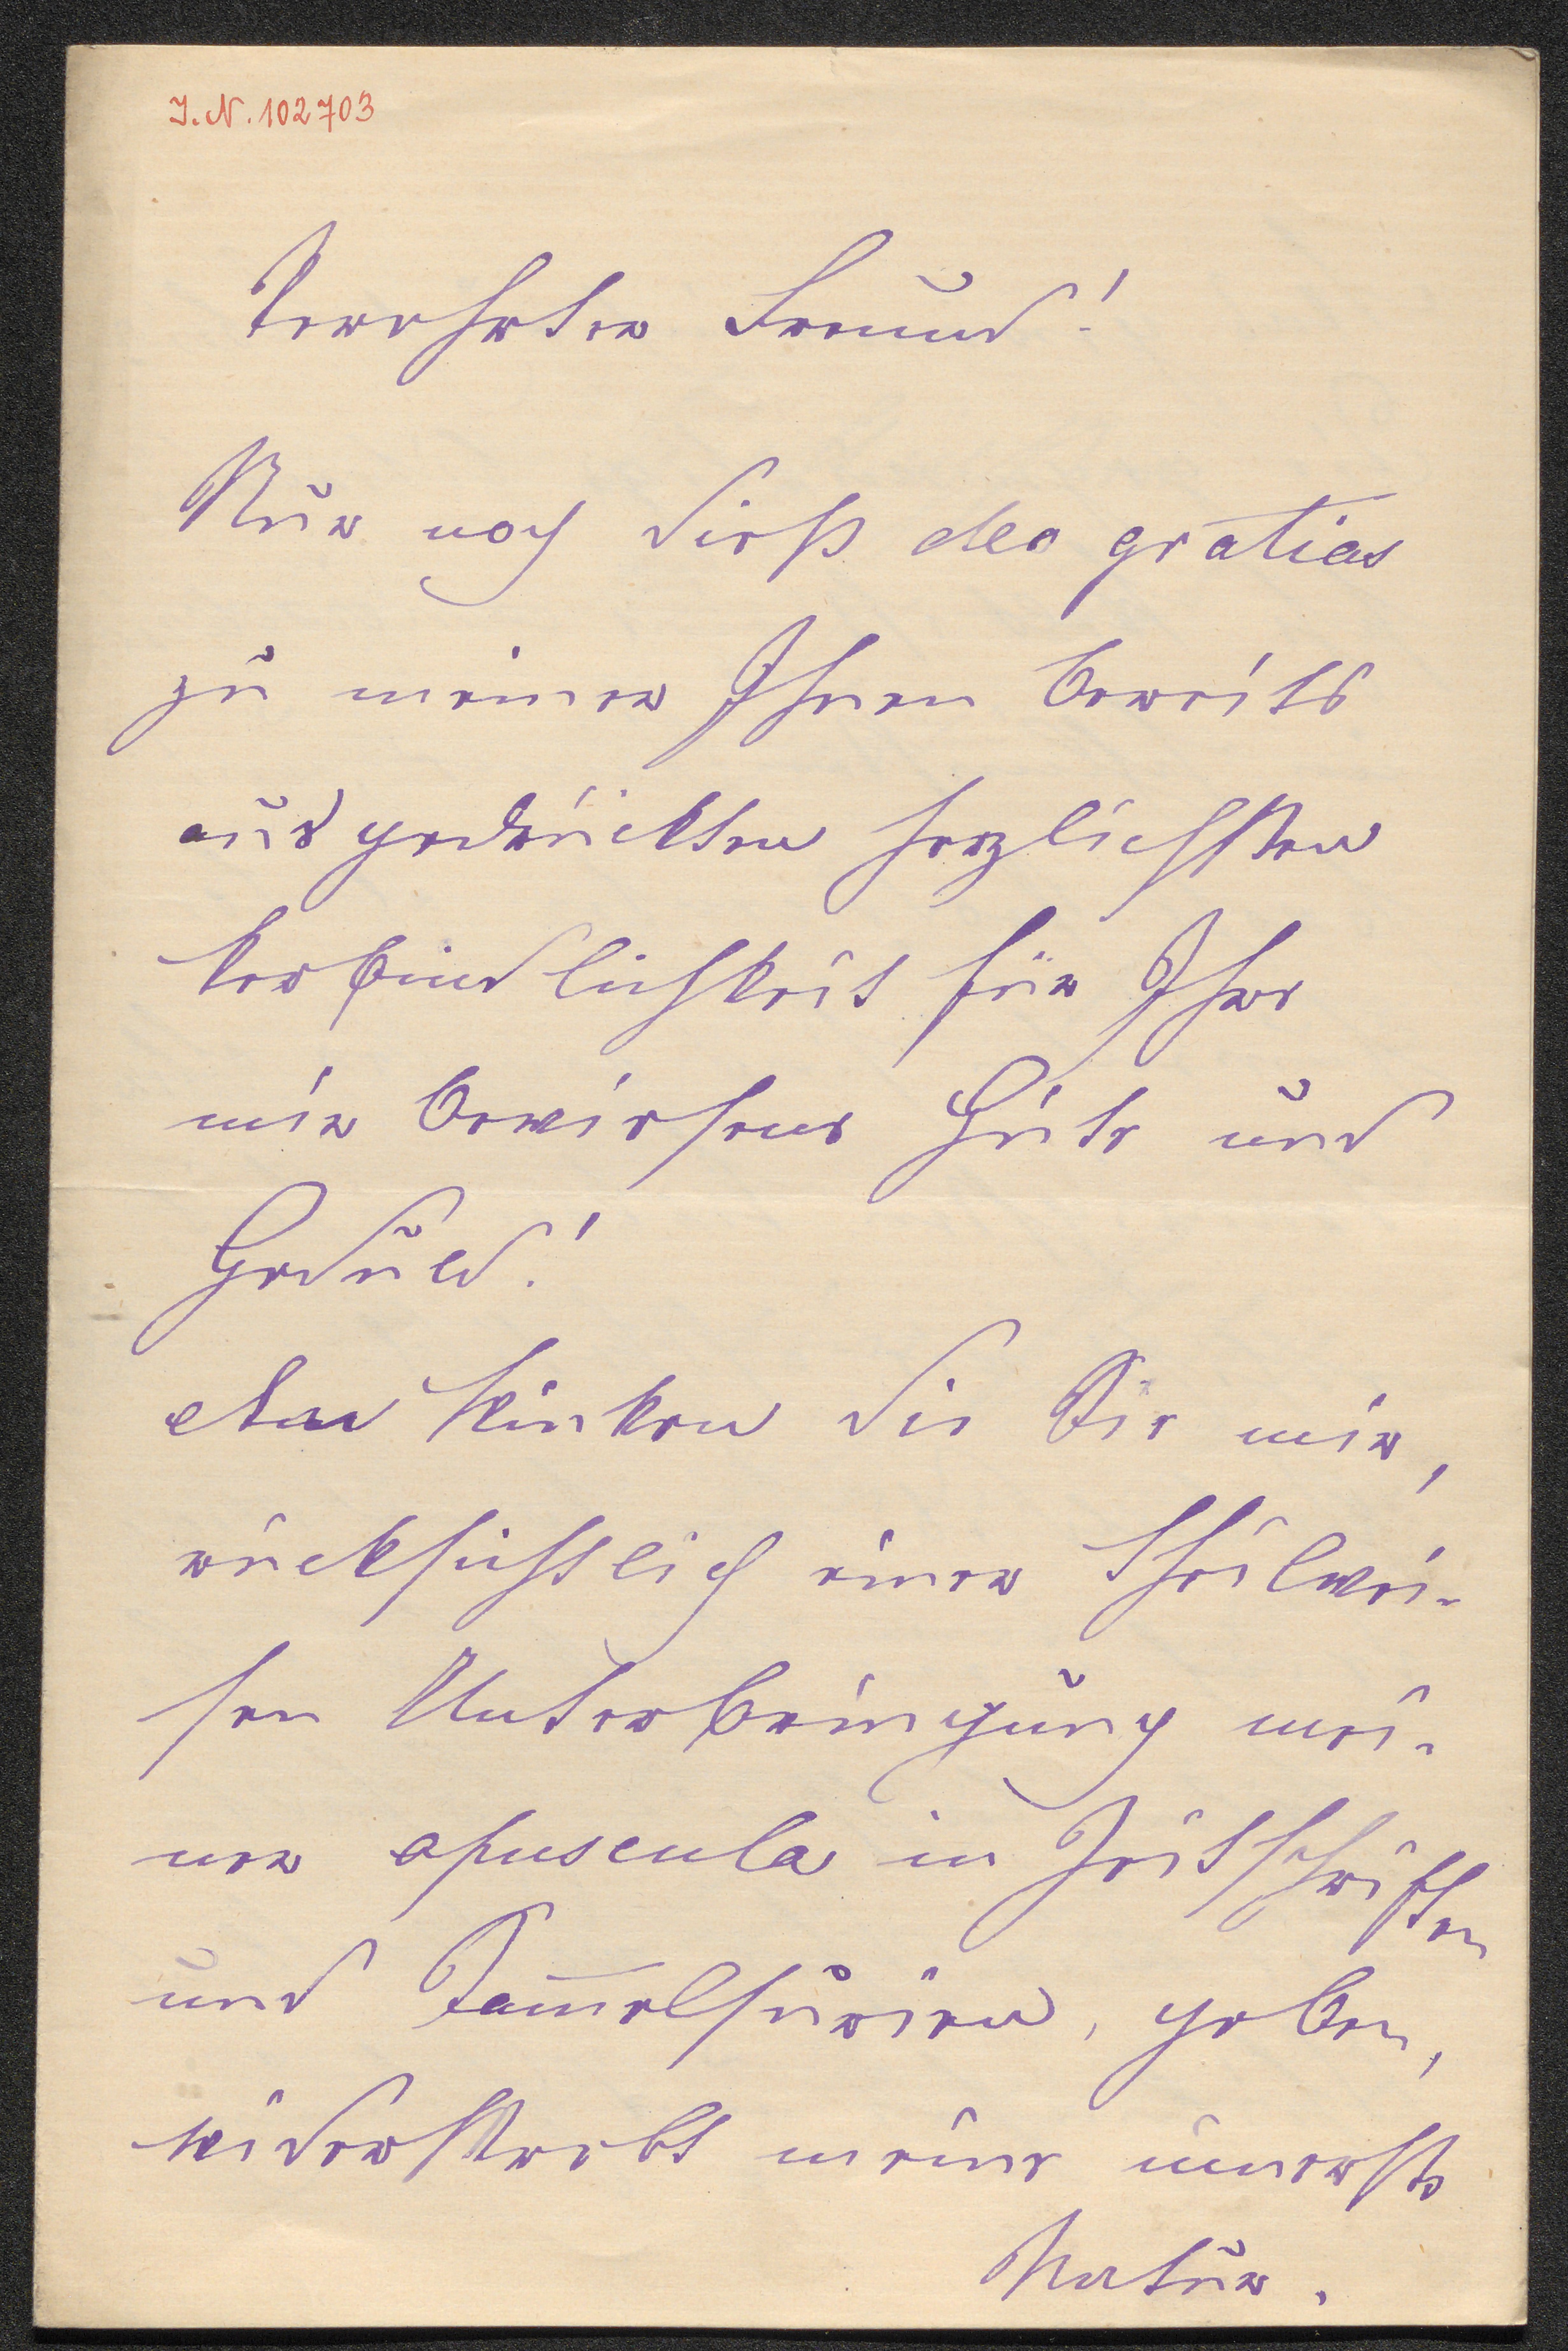 J. N. 102703
Verehrter Freund!
Nur noch dieß deo gratias
zu meiner Ihnen bereits
ausgedrückten herzlichsten
Verbindlichkeit für Ihre
mir bewiesene Güte und
Geduld!
Den Winken die Sie mir,
rücksichtlich einer theilwei-
sen Unterbringung mei-
ner opuscula in Zeitschriften
und geben,
widerstrebt meine innerste
Natur.